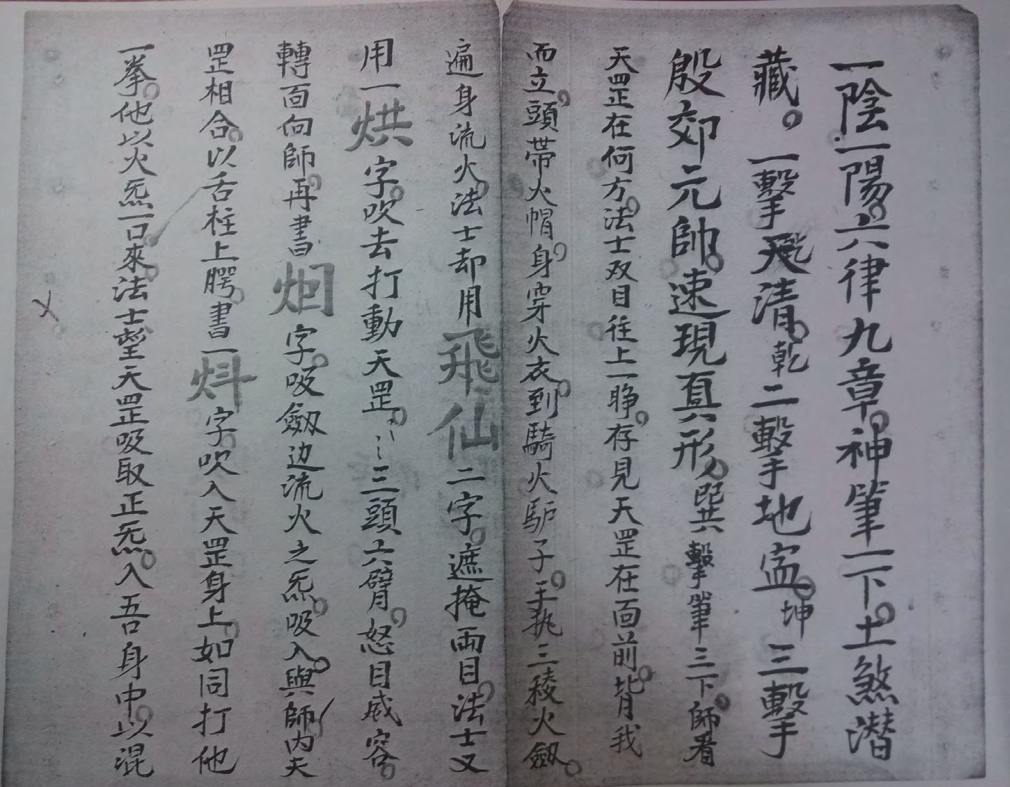 一陰一陽。六律九章。神筆一下。土煞潛
藏。一擊天清。乾二擊地寍。坤三擊
殷郊元帥。速現真形。巽擊筆三下。師看
天罡在何方。法士双目往上一睁。存見天罡在面前。背我
而立。頭帶火帽。身穿火衣。到騎火馿子。手执三稜火劔。
遍身流火。法士却用飛仙二字。遮掩両目。法士又
用一烘字。吹去打動天罡。〻〻三頭六臂。怒目威容。
轉面向師。再書烱字。吸劔边流火之炁。吸入。與師内天
罡相合。以舌柱上腭。書一炓字。吹入天罡身上。如同打他
一拳。他以火炁一口來。法士望天罡吸取正炁。入吾身中。以混